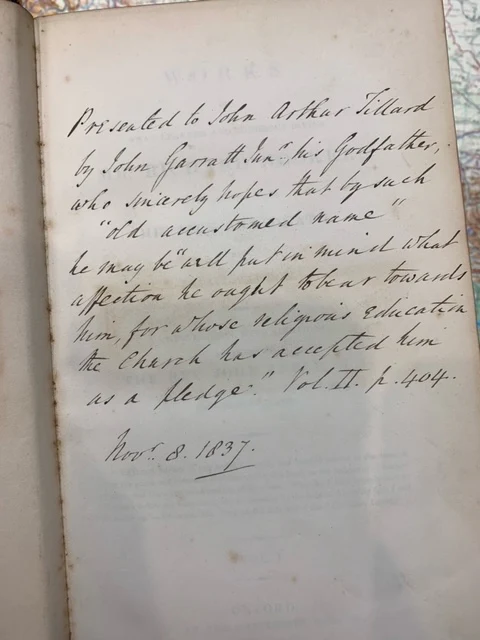 Presented to John Arthur Tillard
by John Garratt Junr. his Godfather,
who sincerely hopes that by such
"old accustomed name"
he may be "well put in mind what
affection he ought to bear towards
him, for whose religious education
the Church has accepted him
as a pledge." Vol. II. p. 404.
Novr. 8. 1837.